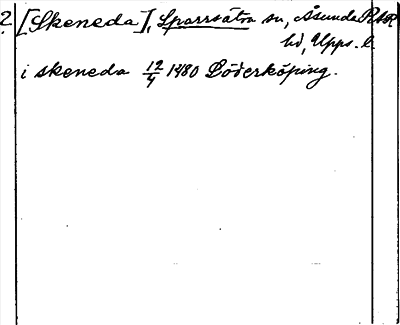 ? [Skeneda], Sparrsätra sn, Åsunda
hd, Upps. l.
i skeneda 12/4 1480 Söderköping.